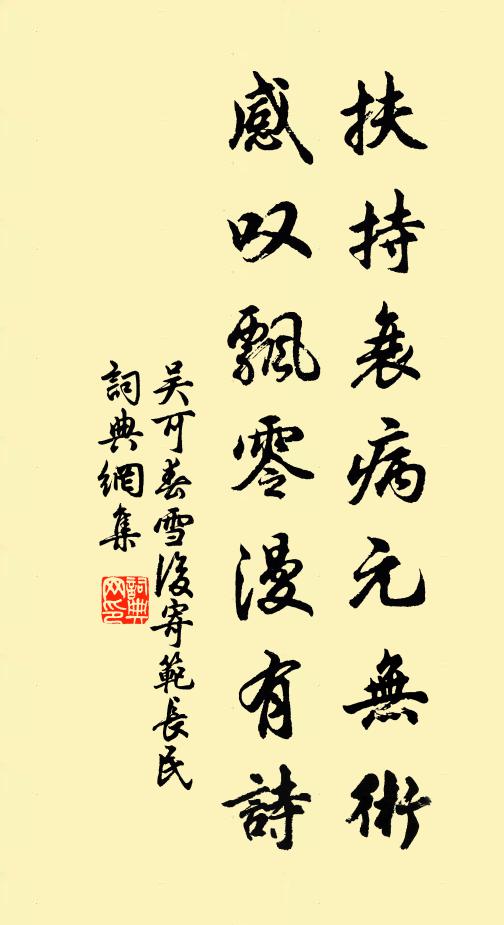 扶持衰病元無術
感叹飄零漫有詩
吴可春雪後寄範長民
詞典網集
詞典網印